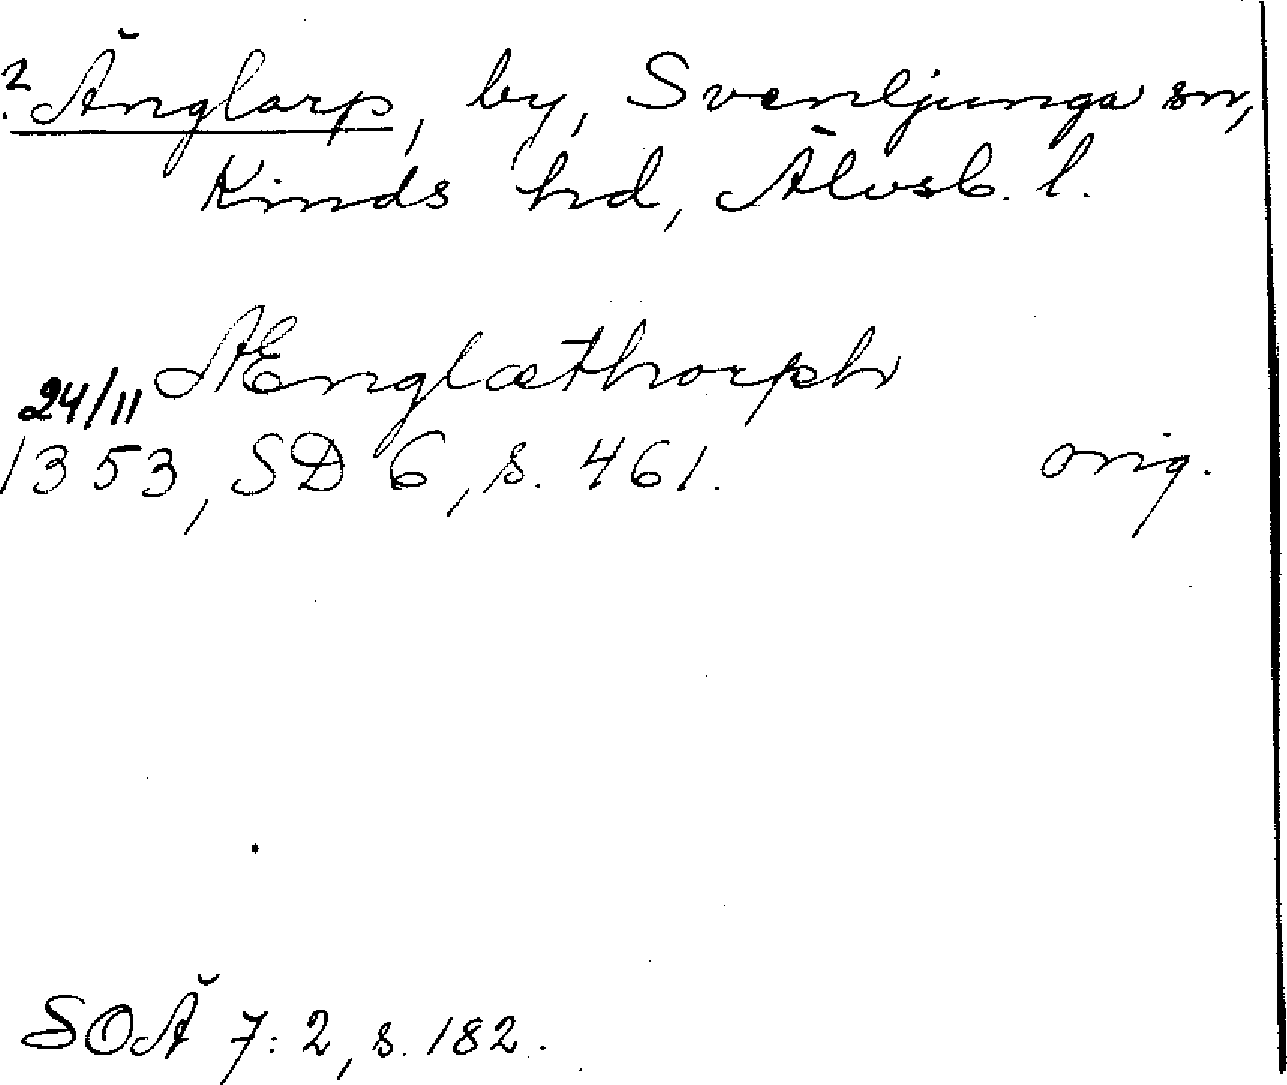 ? Änglarp, by, Svenljunga sn,
Kinds hd, Älvsb. l.
AEnglæthorph
24/11
1353, SD 6, s. 461. orig.
SOÄ 7:2, s. 182.